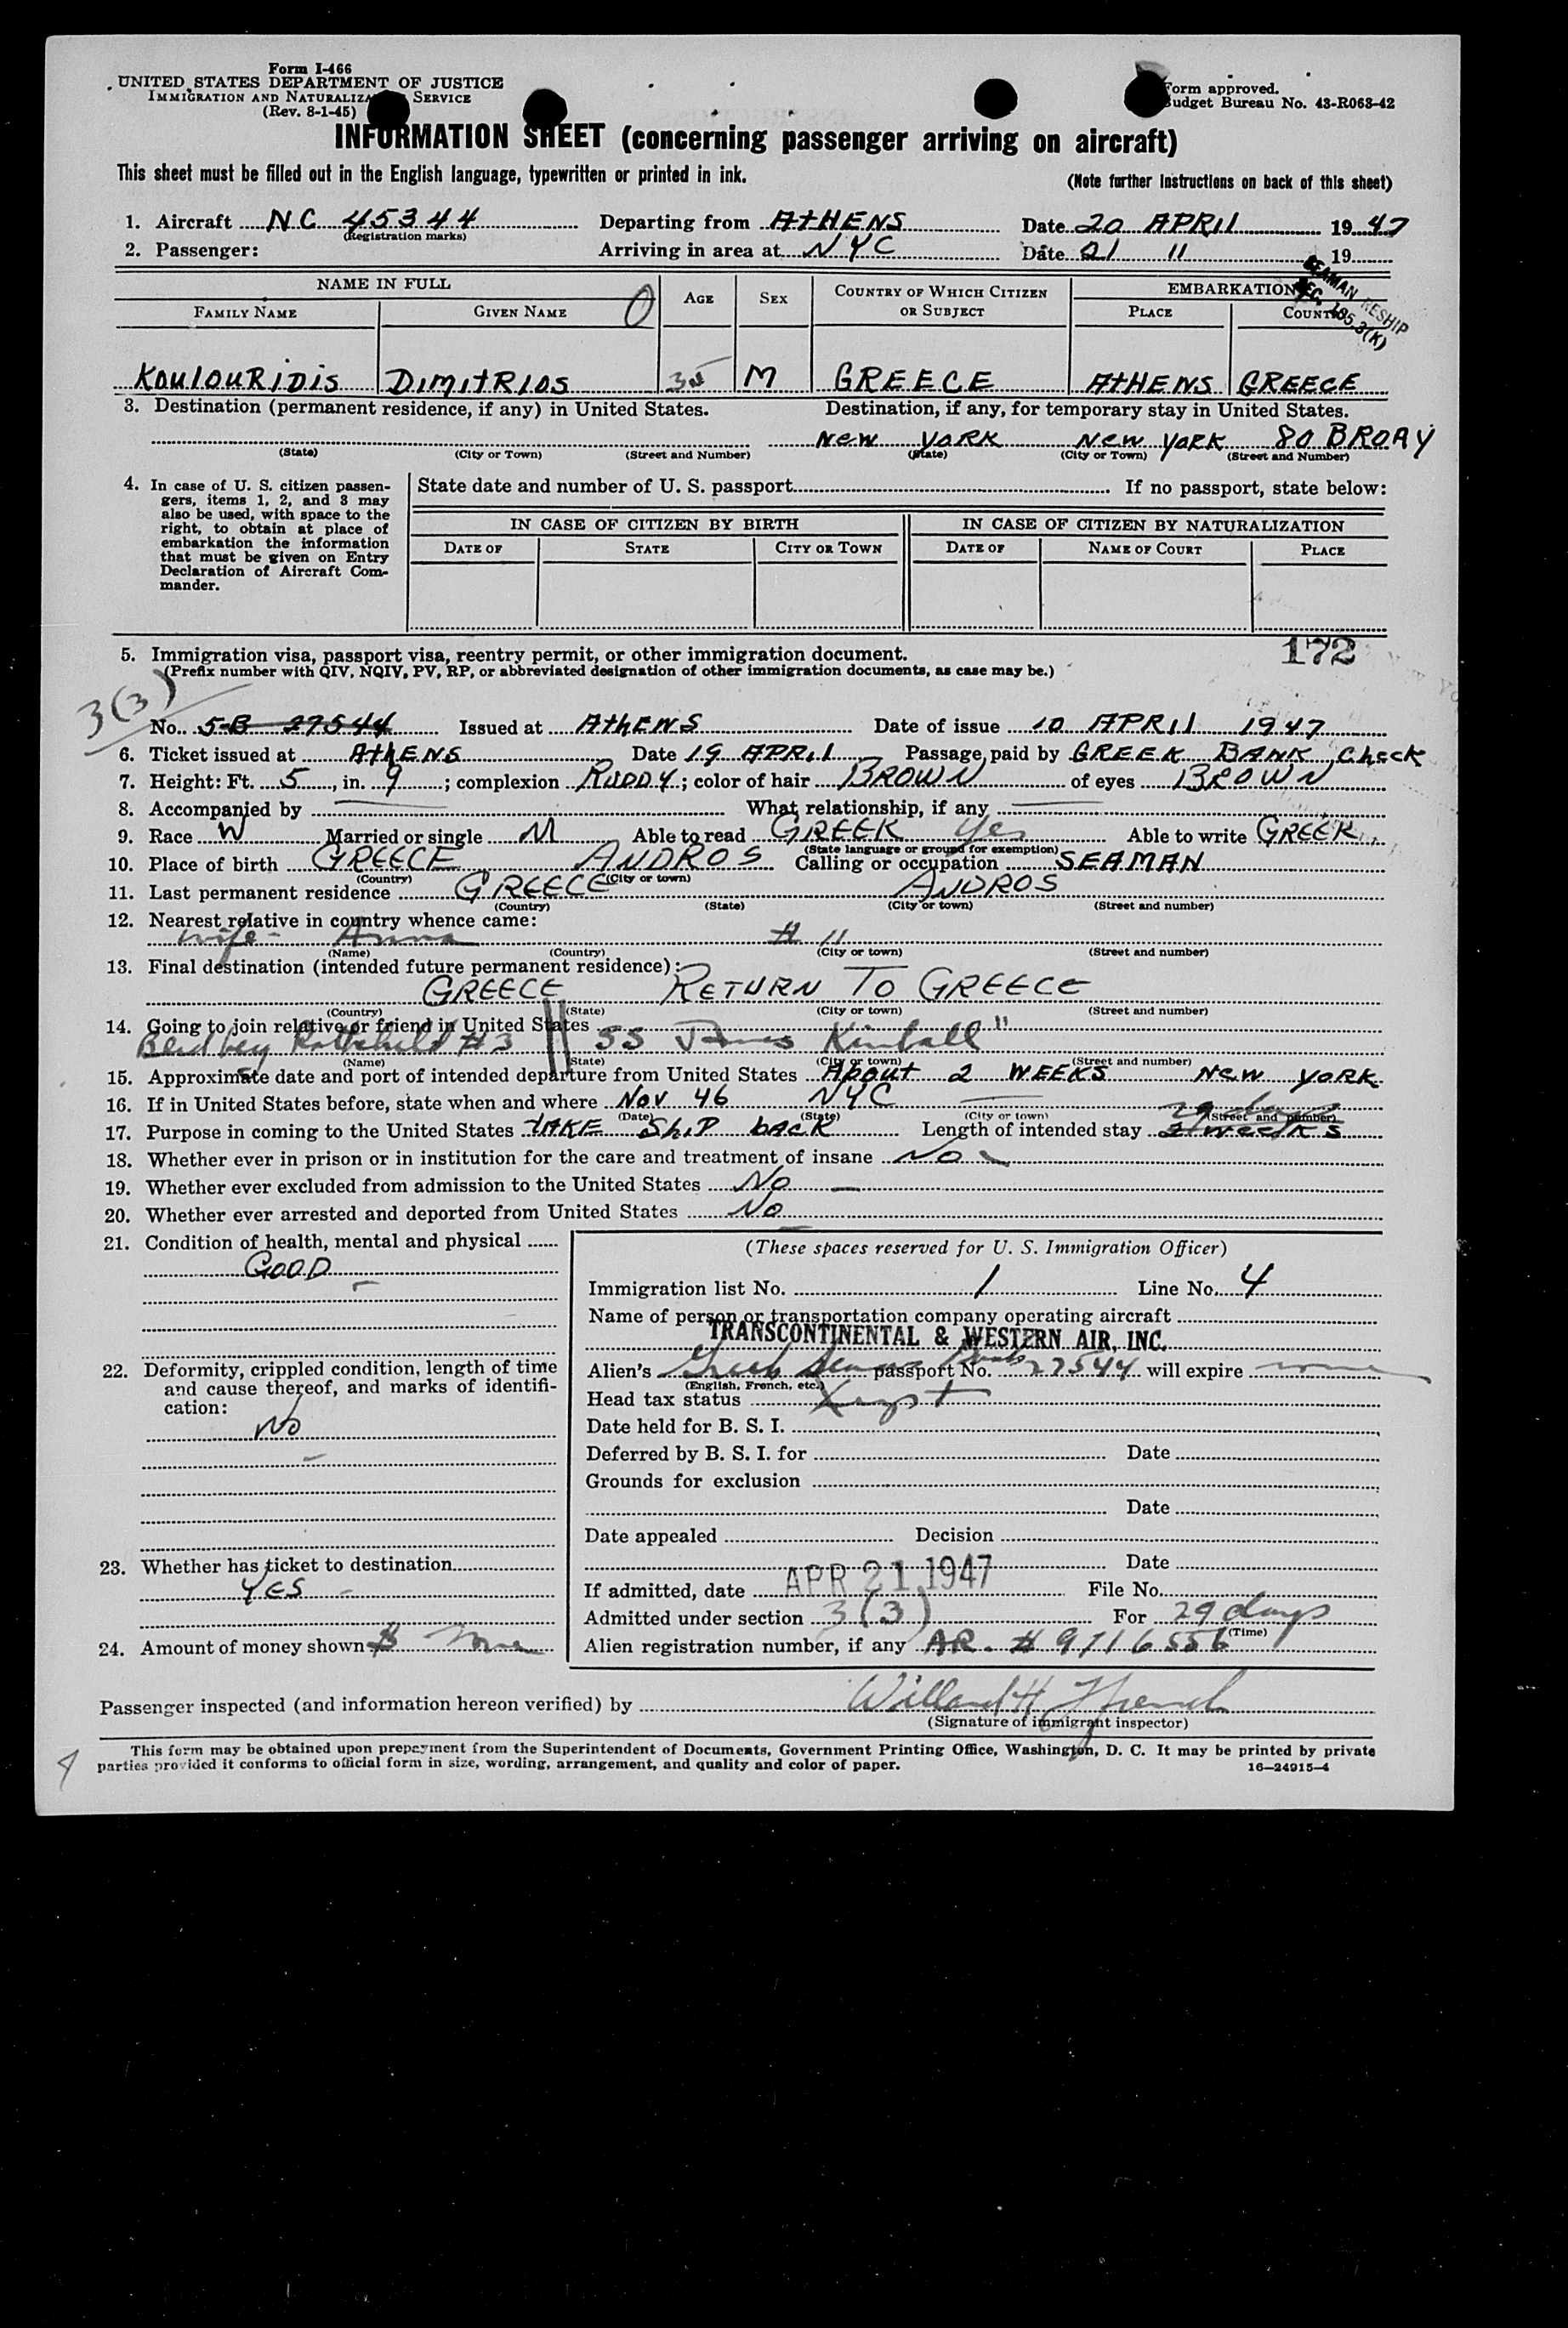 Form I-466
UNITED STATES DEPARTMENT OF JUSTICE
IMMIGRATION AND NATURALIZA SERVICE
(Rev. 8-1-45)
Form approved.
Budget Bureau No. 43-R068-42
INFORMATION SHEET (concerning passenger arriving on aircraft)
This sheet must be filled out in the English language, typewritten or printed in ink.
(Note further instructions on back of this sheet)
1. Aircraft NC 45344 Departing from ATHENS Date 20 APRIL 1947
(Registration marks)
2. Passenger: Arriving in area at NYC Date 21 11 19
SEAMAN RESHIP
SEC. 105.3(K)
NAME IN FULL AGE SEX COUNTRY OF WHICH CITIZEN OR SUBJECT EMBARKATION
FAMILY NAME GIVEN NAME O PLACE COUNT
KOULOURIDIS DIMITRIOS 35 M GREECE ATHENS GREECE
3. Destination (permanent residence, if any) in United States. Destination, if any, for temporary stay in United States.
New YORK New YORK 80 BROAY
(State) (City or Town) (Street and Number) (State) (City or Town) (Street and Number)
4. In case of U. S. citizen passengers, items 1, 2, and 3 may also be used, with space to the right, to obtain at place of embarkation the information that must be given on Entry Declaration of Aircraft Commander.
State date and number of U. S. passport If no passport, state below:
IN CASE OF CITIZEN BY BIRTH IN CASE OF CITIZEN BY NATURALIZATION
DATE OF STATE CITY OR TOWN DATE OF NAME OF COURT PLACE
172
5. Immigration visa, passport visa, reentry permit, or other immigration document.
(Prefix number with QIV, NQIV, PV, RP, or abbreviated designation of other immigration documents, as case may be.)
3(3)
No. 5-B 27544 Issued at AthENS Date of issue 10 APRIL 1947
6. Ticket issued at AthENS Date 19 APRIL Passage paid by GREEK BANK Check
7. Height: Ft. 5, in. 9; complexion RUDDY; color of hair BROWN of eyes BROWN
8. Accompanied by What relationship, if any
9. Race W Married or single M Able to read GREEK Yes Able to write GREEK
(State language or ground for exemption)
10. Place of birth GREECE ANDROS Calling or occupation SEAMAN
(Country) (City or town)
11. Last permanent residence GREECE ANDROS
(Country) (State) (City or town) (Street and number)
12. Nearest relative in country whence came:
wife - Anna # 11
(Name) (Country) (City or town) (Street and number)
13. Final destination (intended future permanent residence):
GREECE RETURN TO GREECE
(Country) (State) (City or town) (Street and number)
14. Going to join relative or friend in United States
Rothchild #3 SS James Kimball"
(Name) (State) (City or town) (Street and number)
15. Approximate date and port of intended departure from United States About 2 WEEKS New YORK
16. If in United States before, state when and where Nov 46 NYC
(Date) (State) (City or town) (Street and number)
29 days
17. Purpose in coming to the United States TAKE ShiP back Length of intended stay 2 weeks
18. Whether ever in prison or in institution for the care and treatment of insane No
19. Whether ever excluded from admission to the United States No
20. Whether ever arrested and deported from United States No
21. Condition of health, mental and physical
GOOD
22. Deformity, crippled condition, length of time and cause thereof, and marks of identification:
No
23. Whether has ticket to destination
YES
24. Amount of money shown $ None
(These spaces reserved for U. S. Immigration Officer)
Immigration list No. 1 Line No. 4
Name of person or transportation company operating aircraft
TRANSCONTINENTAL & WESTERN AIR, INC.
Alien's Greek Seamans passport No. 27544 will expire none
(English, French, etc.)
Head tax status
Date held for B. S. I.
Deferred by B. S. I. for Date
Grounds for exclusion
Date
Date appealed Decision
Date
If admitted, date APR 21 1947 File No.
Admitted under section 3(3) For 29 days
(Time)
Alien registration number, if any AR. # 9716556
Passenger inspected (and information hereon verified) by Willard H. French
(Signature of immigrant inspector)
This form may be obtained upon prepayment from the Superintendent of Documents, Government Printing Office, Washington, D. C. It may be printed by private
parties provided it conforms to official form in size, wording, arrangement, and quality and color of paper.
16—24915-4